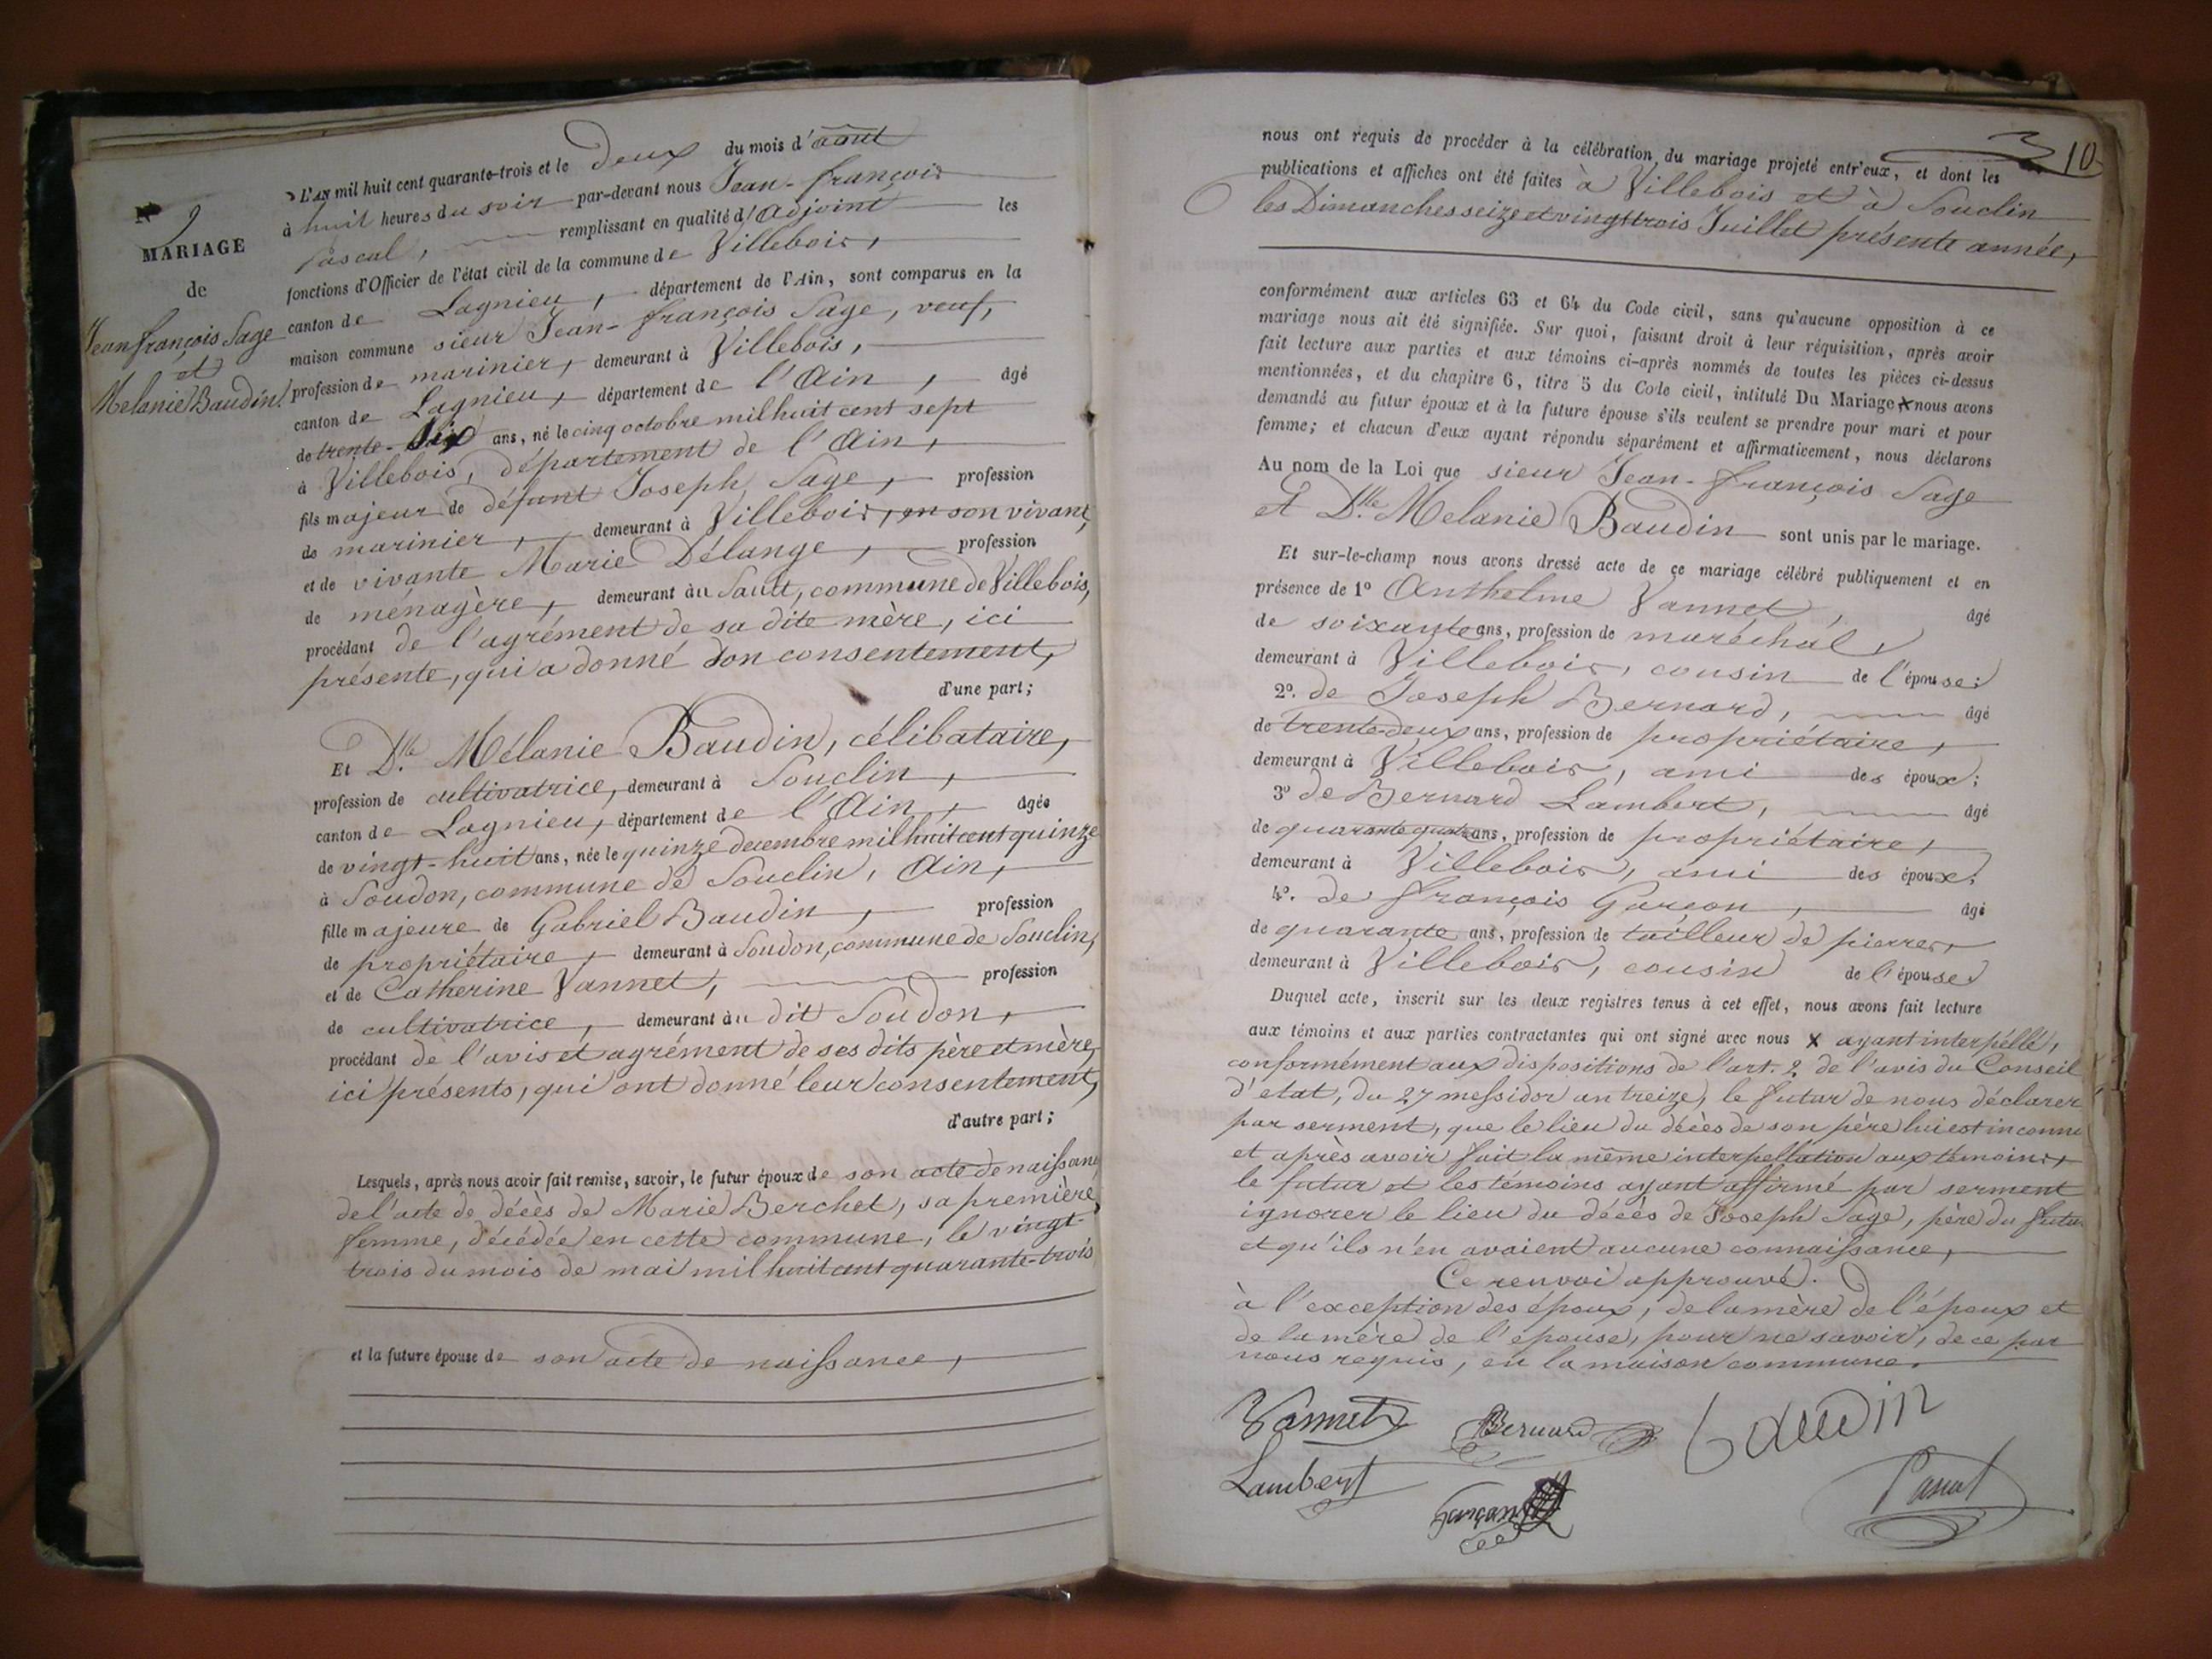 N° 9
MARIAGE
de
Jean françois Sage
et
Melanie Baudin.
L'AN mil huit cent quarante-trois et le deux du mois d'août
à huit heures du soir par-devant nous Jean-françois
Pascal, remplissant en qualité d'Adjoint les
fonctions d'Officier de l'état civil de la commune de Villebois,
canton de Lagnieu, département de l'Ain, sont comparus en la
maison commune sieur Jean-françois Sage, veuf,
profession de marinier, demeurant à Villebois,
canton de Lagnieu, département de l'Ain, âgé
de trente-six ans, né le cinq octobre mil huit cent sept
à Villebois, département de l'Ain,
fils majeur de défunt Joseph Sage, profession
de marinier, demeurant à Villebois, en son vivant,
et de vivante Marie Délange, profession
de ménagère, demeurant au Sault, commune de Villebois,
procédant de l'agrément de sa dite mère, ici
présente, qui a donné son consentement,
d'une part;
Et D.lle Mélanie Baudin, célibataire,
profession de cultivatrice, demeurant à Souclin,
canton de Lagnieu, département de l'Ain, âgée
de vingt-huit ans, née le quinze decembre mil huit cent quinze
à Soudon, commune de Souclin, Ain,
fille majeure de Gabriel Baudin, profession
de propriétaire, demeurant à Soudon, commune de Souclin,
et de Catherine Vannet, profession
de cultivatrice, demeurant au dit Soudon,
procédant de l'avis et agrément de ses dits père et mère,
ici présents, qui ont donné leur consentement,
d'autre part;
Lesquels, après nous avoir fait remise, savoir, le futur époux de son acte de naissance
de l'acte de décès de Marie Berchet, sa première
femme, décédée en cette commune, le vingt-
trois du mois de mai mil huit cent quarante-trois
et la future épouse de son acte de naissance,
10
nous ont requis de procéder à la célébration du mariage projeté entr'eux, et dont les
publications et affiches ont été faites à Villebois et à Souclin
les Dimanches seize et vingt trois Juillet présente année,
conformément aux articles 63 et 64 du Code civil, sans qu'aucune opposition à ce
mariage nous ait été signifiée. Sur quoi, faisant droit à leur réquisition, après avoir
fait lecture aux parties et aux témoins ci-après nommés de toutes les pièces ci-dessus
mentionnées, et du chapitre 6, titre 5 du Code civil, intitulé Du Mariage X nous avons
demandé au futur époux et à la future épouse s'ils veulent se prendre pour mari et pour
femme; et chacun d'eux ayant répondu séparément et affirmativement, nous déclarons
Au nom de la Loi que sieur Jean-françois Sage
et D.lle Melanie Baudin sont unis par le mariage.
Et sur-le-champ nous avons dressé acte de ce mariage célébré publiquement et en
présence de 1° Anthelme Vannet, âgé
de soixante ans, profession de maréchal,
demeurant à Villebois, cousin de l'épouse;
2°. de Joseph Bernard, âgé
de trente-deux ans, profession de propriétaire,
demeurant à Villebois, ami des époux;
3° de Bernard Lambert, âgé
de quarante quatre ans, profession de propriétaire,
demeurant à Villebois, ami des époux;
4°. de François Garçon, âgé
de quarante ans, profession de tailleur de pierres,
demeurant à Villebois, cousin de l'épouse
Duquel acte, inscrit sur les deux registres tenus à cet effet, nous avons fait lecture
aux témoins et aux parties contractantes qui ont signé avec nous X ayant interpéllé,
conformément aux dispositions de l'art. 2 de l'avis du Conseil
d'état, du 27 messidor an treize, le futur de nous déclarer
par serment, que le lieu du décès de son père lui est inconnu
et après avoir fait la même interpellation aux témoins,
le futur et les témoins ayant affirmé par serment
ignorer le lieu du décès de Joseph Sage, père du futur
et qu'ils n'en avaient aucune connaissance,
Ce renvoi approuvé.
à l'exception des époux, de la mère de l'époux et
de la mère de l'épouse, pour ne savoir, de ce par
nous requis, en la maison commune.
Vannet Bernard Baudin
Lambert Garçon Pascal